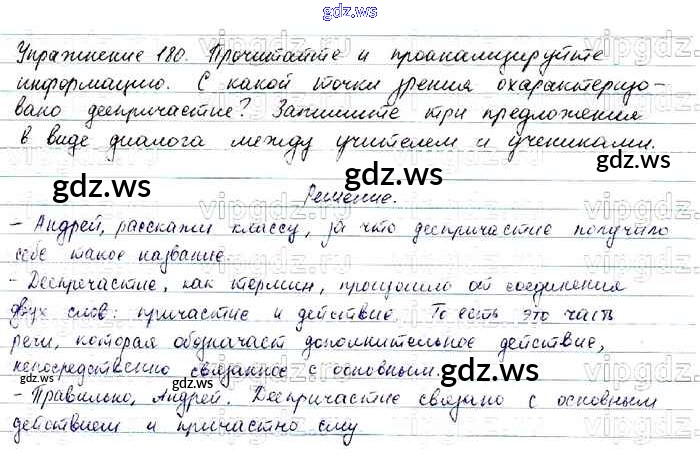 gdz.ws
Упражнение 180. Прочитайте и проанализируйте
информацию. С какой точки зрения охарактеризо-
вано деепричастие? Запишите три предложения
в виде диалога между учителем и учениками.
gdz.ws gdz.ws gdz.ws
Решение.
- Андрей, расскажи классу, за что деепричастие получило
себе такое название.
- Деепричастие, как термин, произошло от соединения
двух слов: причастие и действие. То есть это часть
речи, которая обозначает дополнительное действие,
непосредственно связанное с основным.
gdz.ws gdz.ws gdz.ws
- Правильно, Андрей. Деепричастие связано с основным
действием и причастно ему